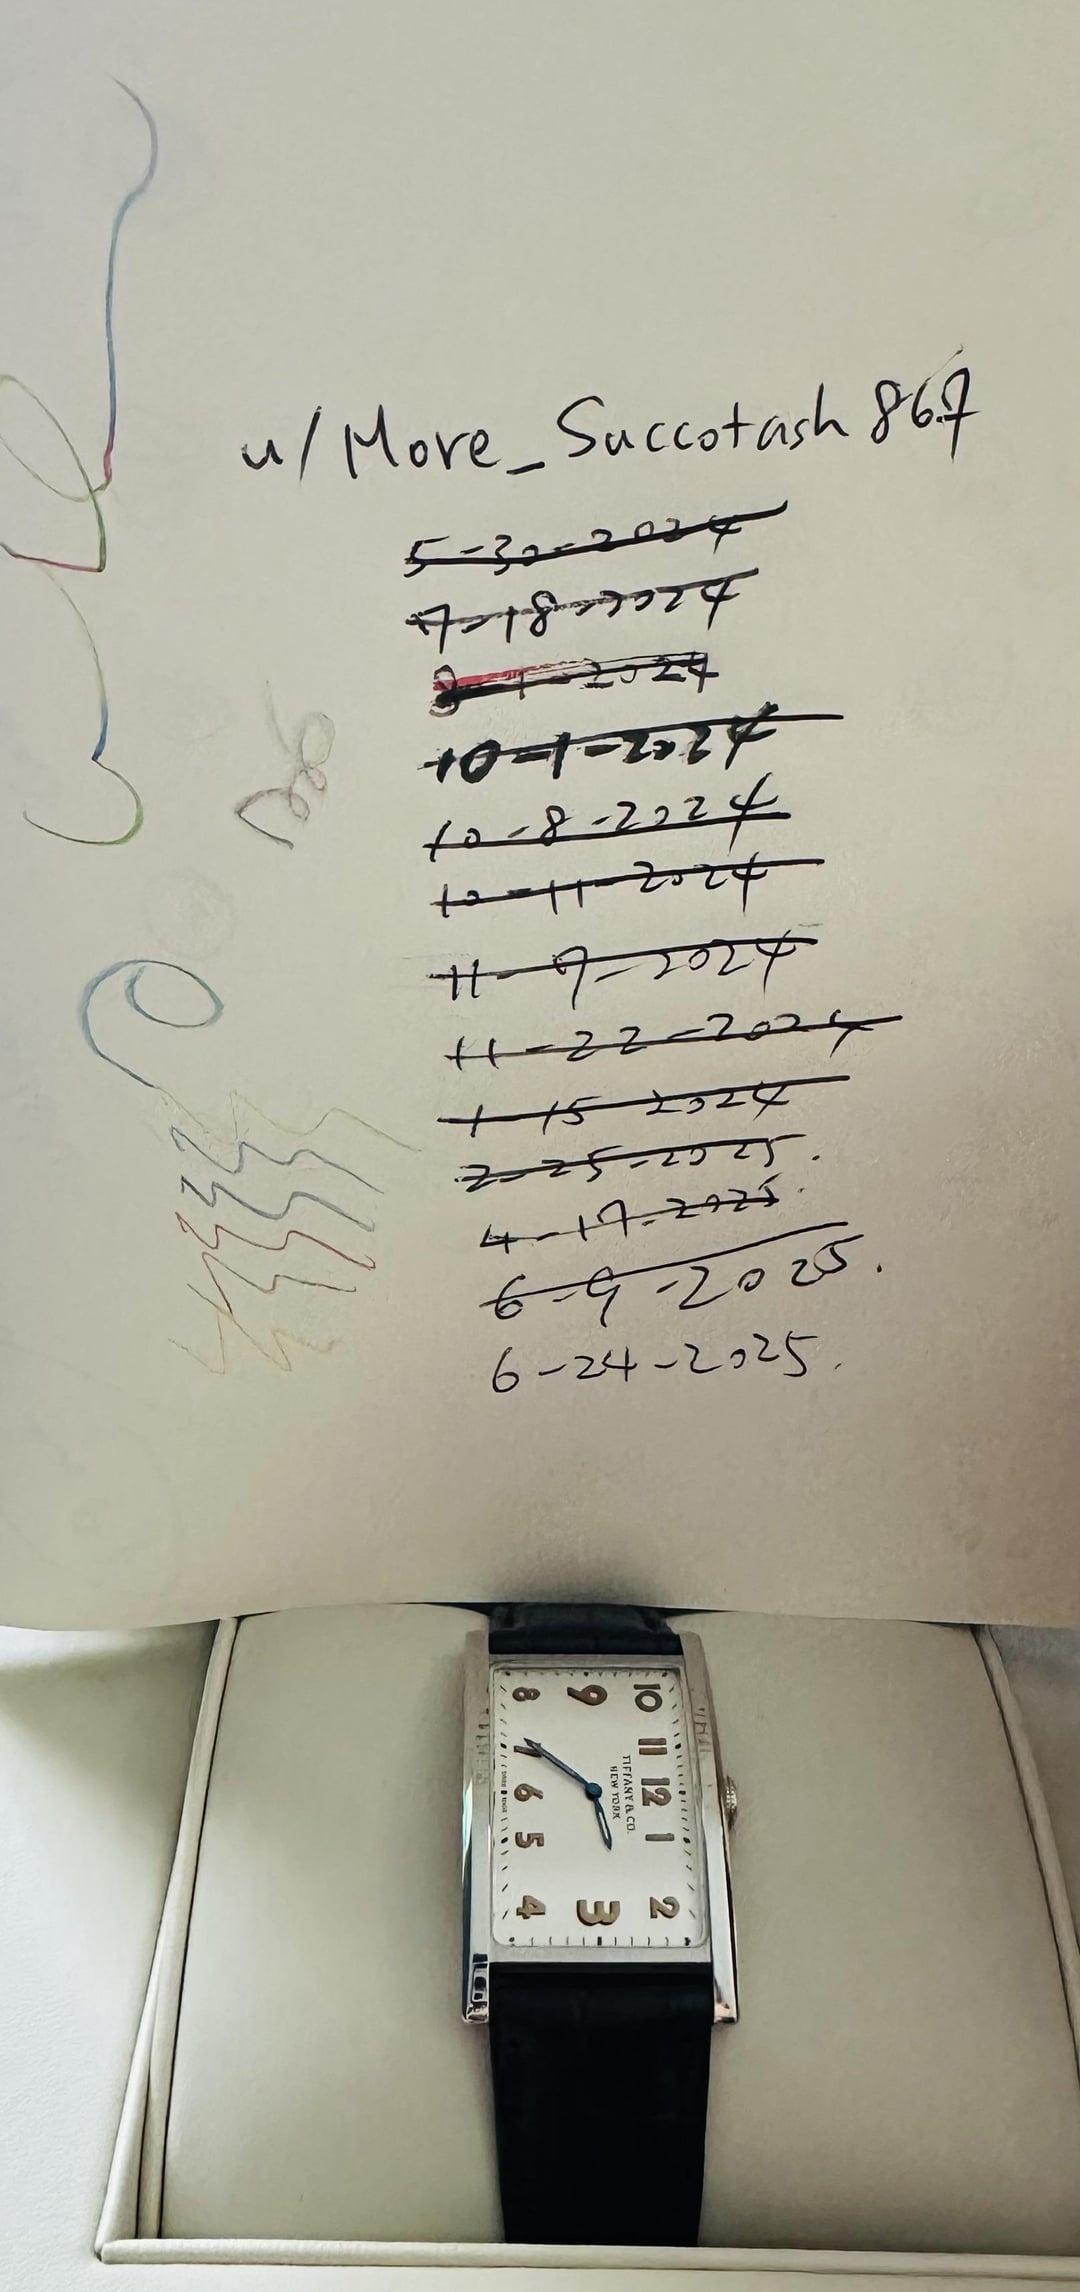 u/More_Succotash867
5-30-2024
7-18-2024
8-1-2024
10-1-2024
10-8-2024
10-11-2024
11-7-2024
11-22-2024
1-15-2024
2-25-2025.
4-17-2025.
6-9-2025.
6-24-2025.
TIFFANY & CO.
NEW YORK
10 11 12 1 2
9 3
8 7 6 5 4